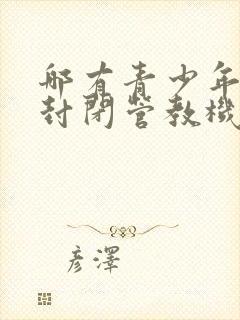 那有青少年
封閉營教機
彦澤